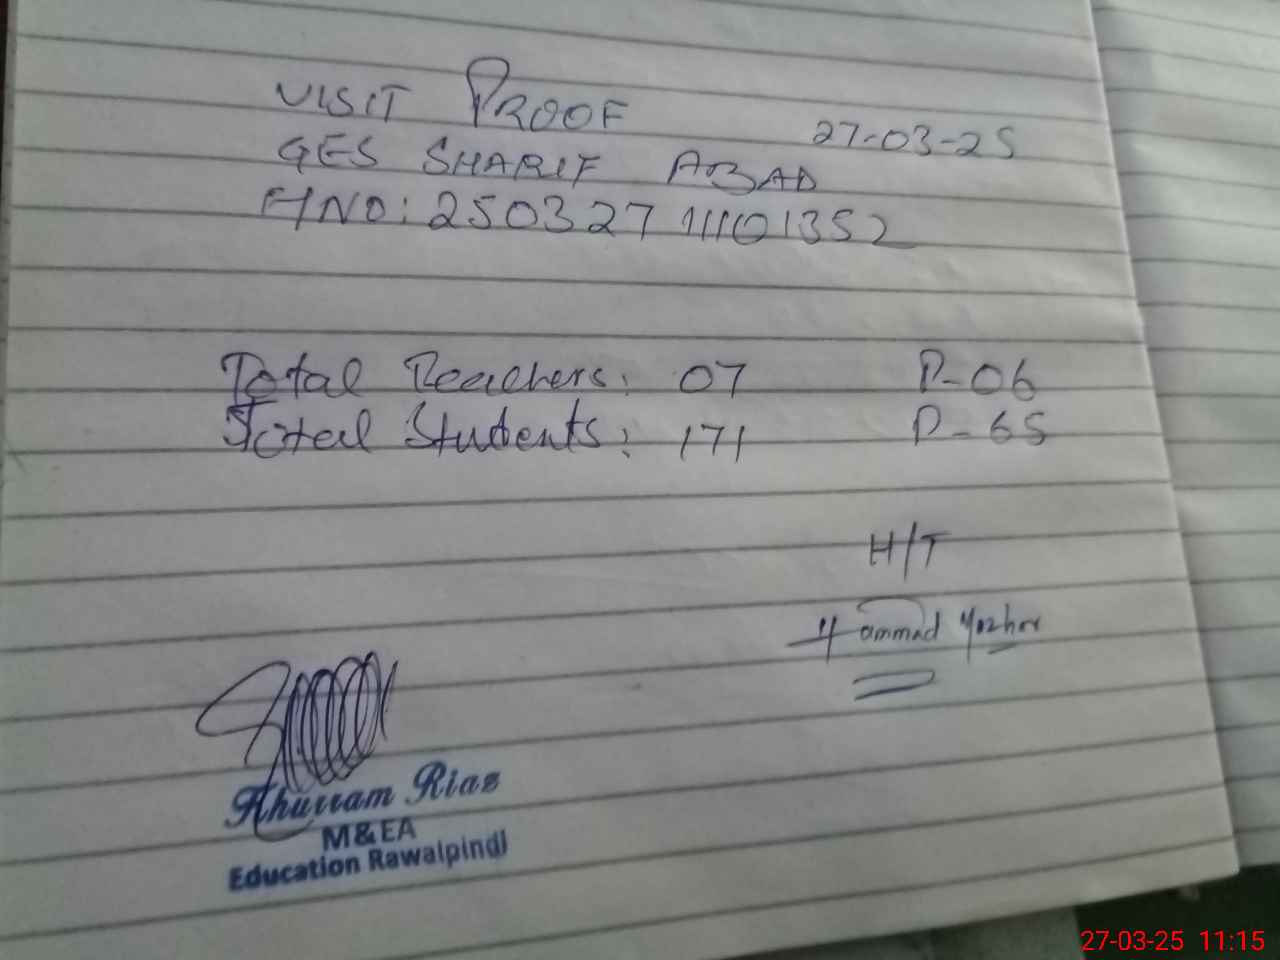 VISIT PROOF
27-03-25
GES SHARIF ABAD
HNO: 250327 11101352
Total Teachers: 07 P-06
Total Students: 171 P-65
H/T
Hammad Mazhar
Khurram Riaz
M&EA
Education Rawalpindi
27-03-25 11:15